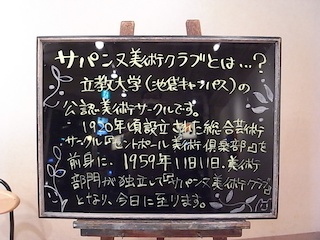 サパンヌ美術クラブとは…?
立教大学(池袋キャンパス)の
公認美術サークルです。
1920年頃設立された総合芸術
サークル『セントポール美術倶楽部』を
前身に、1959年11月1日、美術
部門が独立して『サパンヌ美術クラブ』
となり、今日に至ります。